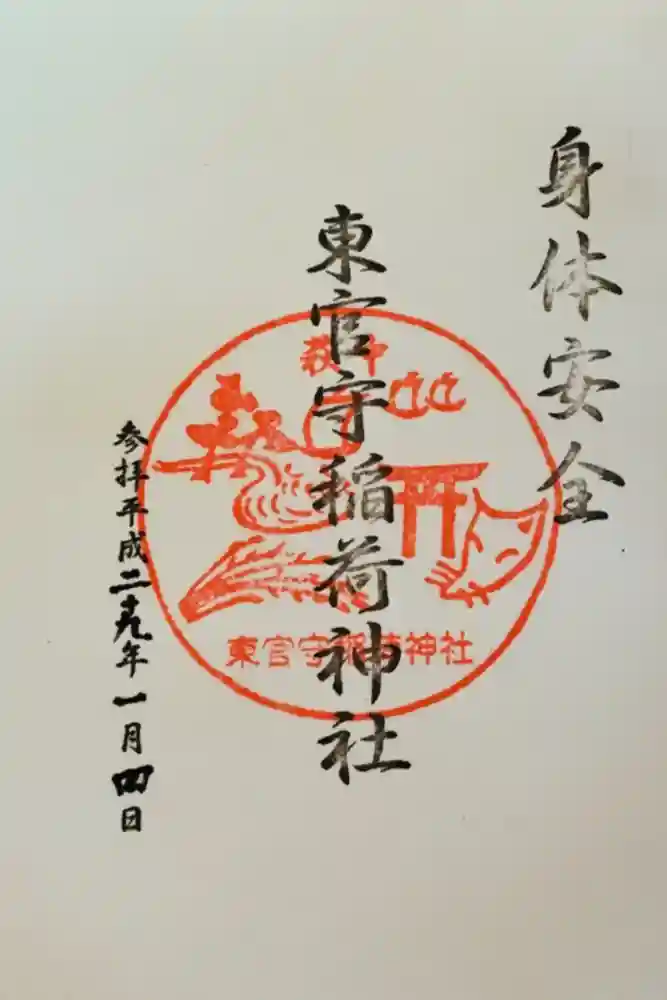 身体安全
東官守稲荷神社
萩中
東官守稲荷神社
参拝平成二十九年一月四日